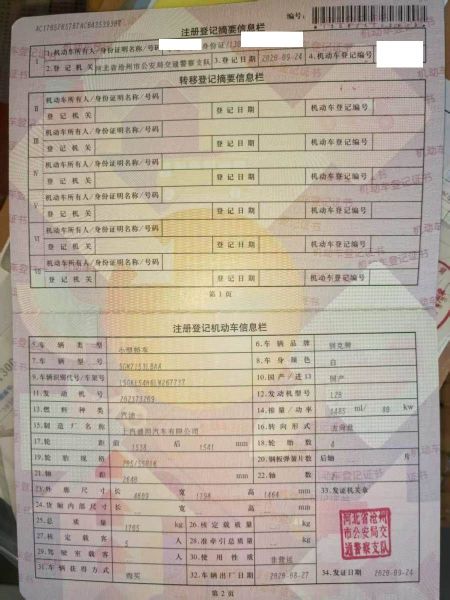 注册登记摘要信息栏
编号：
I 1.机动车所有人/身份证明名称/号码 身份证/13
2.登记机关 河北省沧州市公安局交通警察支队 3.登记日期 2020-09-24 4.机动车登记编号
转移登记摘要信息栏
II 机动车所有人/身份证明名称/号码
登记机关 登记日期 机动车登记编号
III 机动车所有人/身份证明名称/号码
登记机关 登记日期 机动车登记编号
IV 机动车所有人/身份证明名称/号码
登记机关 登记日期 机动车登记编号
V 机动车所有人/身份证明名称/号码
登记机关 登记日期 机动车登记编号
VI 机动车所有人/身份证明名称/号码
登记机关 登记日期 机动车登记编号
VII 机动车所有人/身份证明名称/号码
登记机关 登记日期 机动车登记编号
第1页
注册登记机动车信息栏
5.车辆类型 小型轿车 6.车辆品牌 别克牌
7.车辆型号 8.车身颜色 白
9.车辆识别代号/车架号 10.国产/进口 国产
11.发动机号 12.发动机型号 LZB
13.燃料种类 汽油 14.排量/功率 1485 ml/ 80 kw
15.制造厂名称 上汽通用汽车有限公司 16.转向形式 方向盘
17.轮距 前 1538 后 1541 mm 18.轮胎数 4
19.轮胎规格 20.钢板弹簧片数 后轴 片
21.轴距 2640 mm 22.轴数 2
23.外廓尺寸 长 4609 宽 1798 高 1464 mm 33.发证机关章
24.货厢内部尺寸 长 宽 高 mm
25.总质量 1705 kg 26.核定载质量 kg
27.核定载客 5 人 28.准牵引总质量 kg
29.驾驶室载客 人 30.使用性质 非营运
31.车辆获得方式 购买 32.车辆出厂日期 2020-08-27 34.发证日期 2020-09-24
河北省沧州
市公安局交
通警察支队
第2页